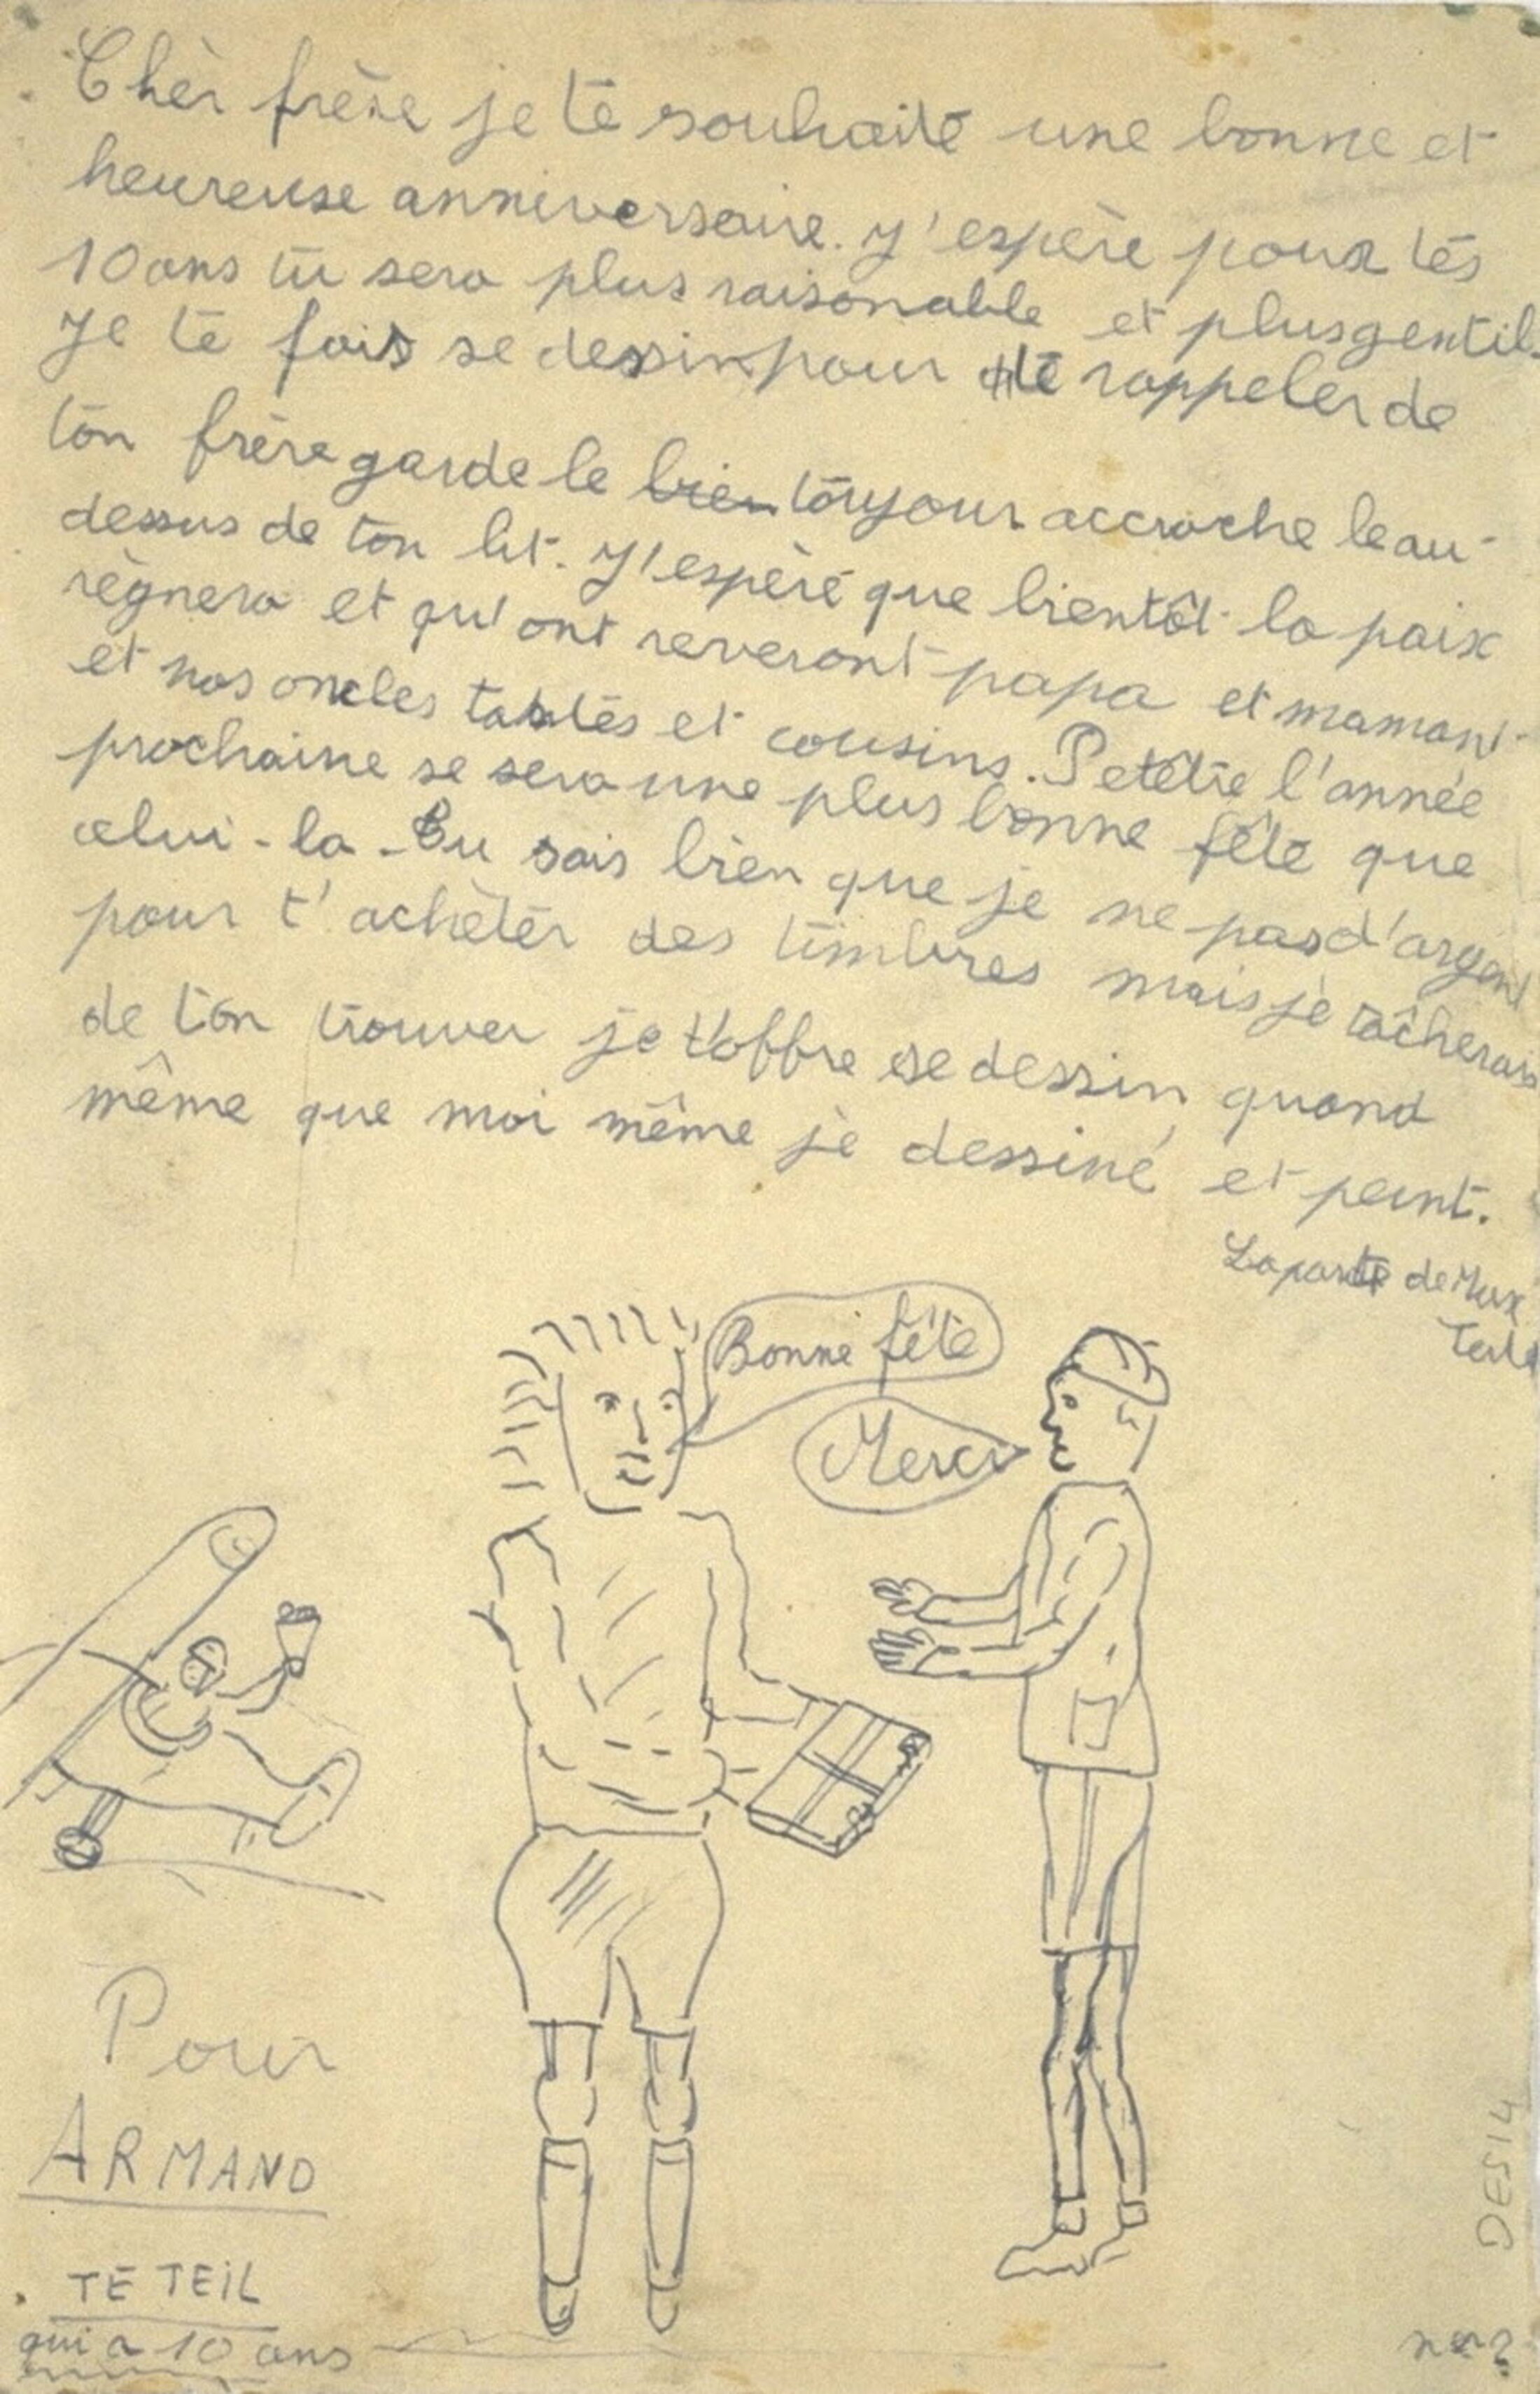 Chèr frère je te souhaite une bonne et
heureuse anniversaire. J'espère pour tes
10 ans tu sera plus raisonable et plus gentil.
Je te fais se dessin pour te rappeler de
ton frère garde le bien toujour accroche le au-
dessus de ton lit. J'espère que bientôt la paix
règnera et qu'ont reveront papa et maman
et nos oncles tantes et cousins. Petêtre l'année
prochaine se sera une plus bonne fête que
celui-la. Tu sais bien que je ne pas d'argent
pour t'achètér des timbres mais je tâcherais
de t'on trouver je t'offre se dessin quand
même que moi même je dessine et peint.
Lapart de Max
Bonne fête
Merci
Pour
ARMAND
TETEIL
qui a 10 ans
DES14